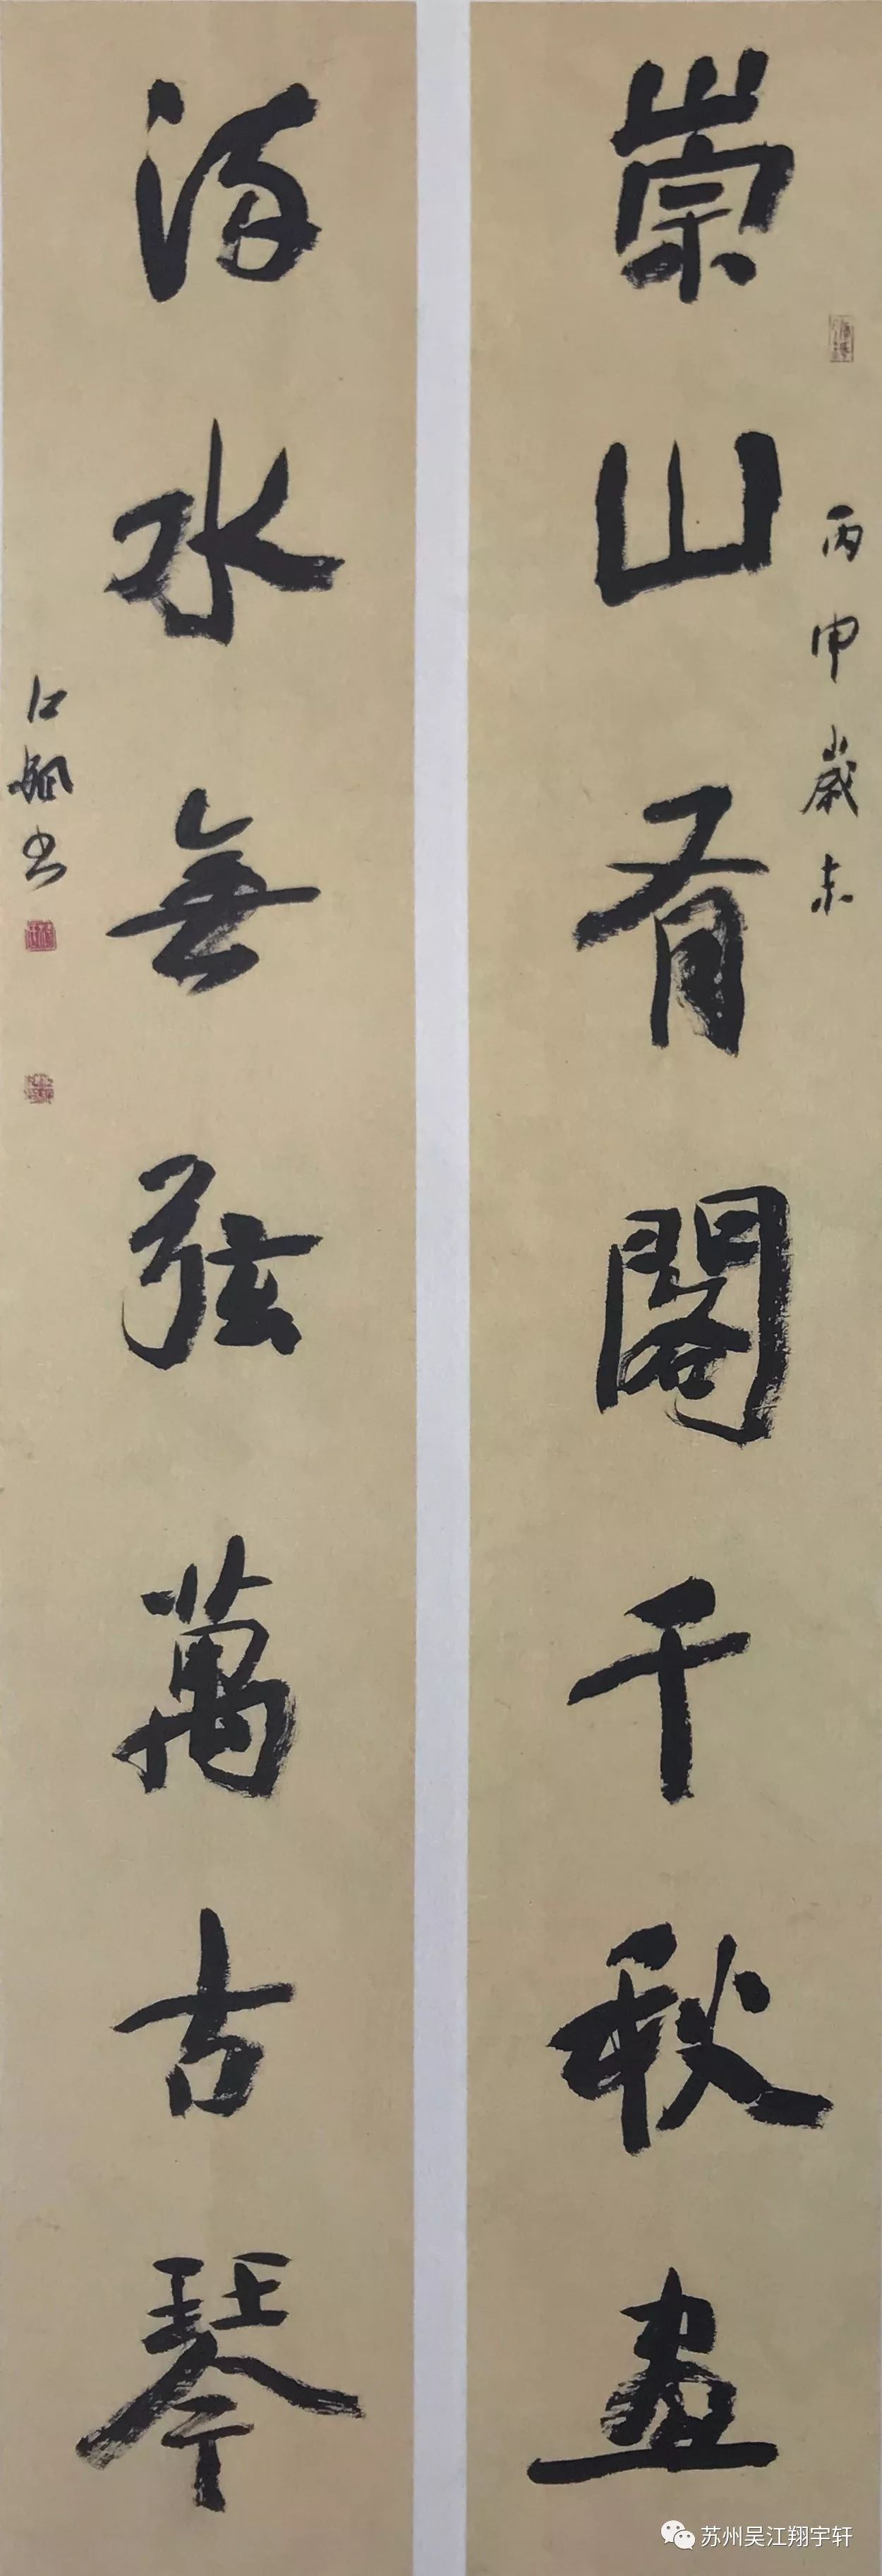 崇山有閣千秋畫
丙申歲末
流水無弦萬古琴
书
苏州吴江翔宇轩